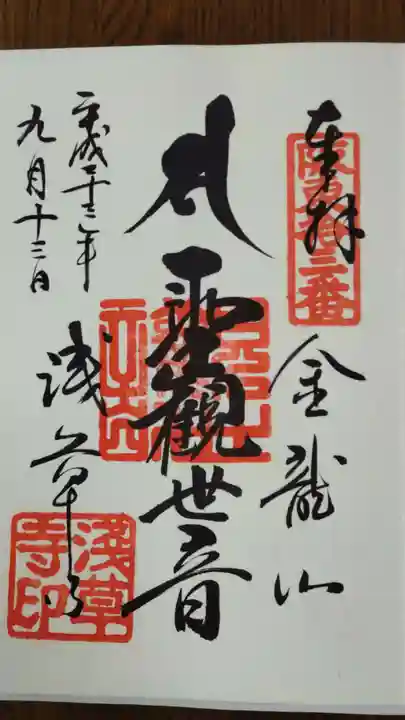 奉拝
坂東十三番
金龍山
聖觀世音
浅草寺
平成二十三年
九月十三日
淺草
寺印